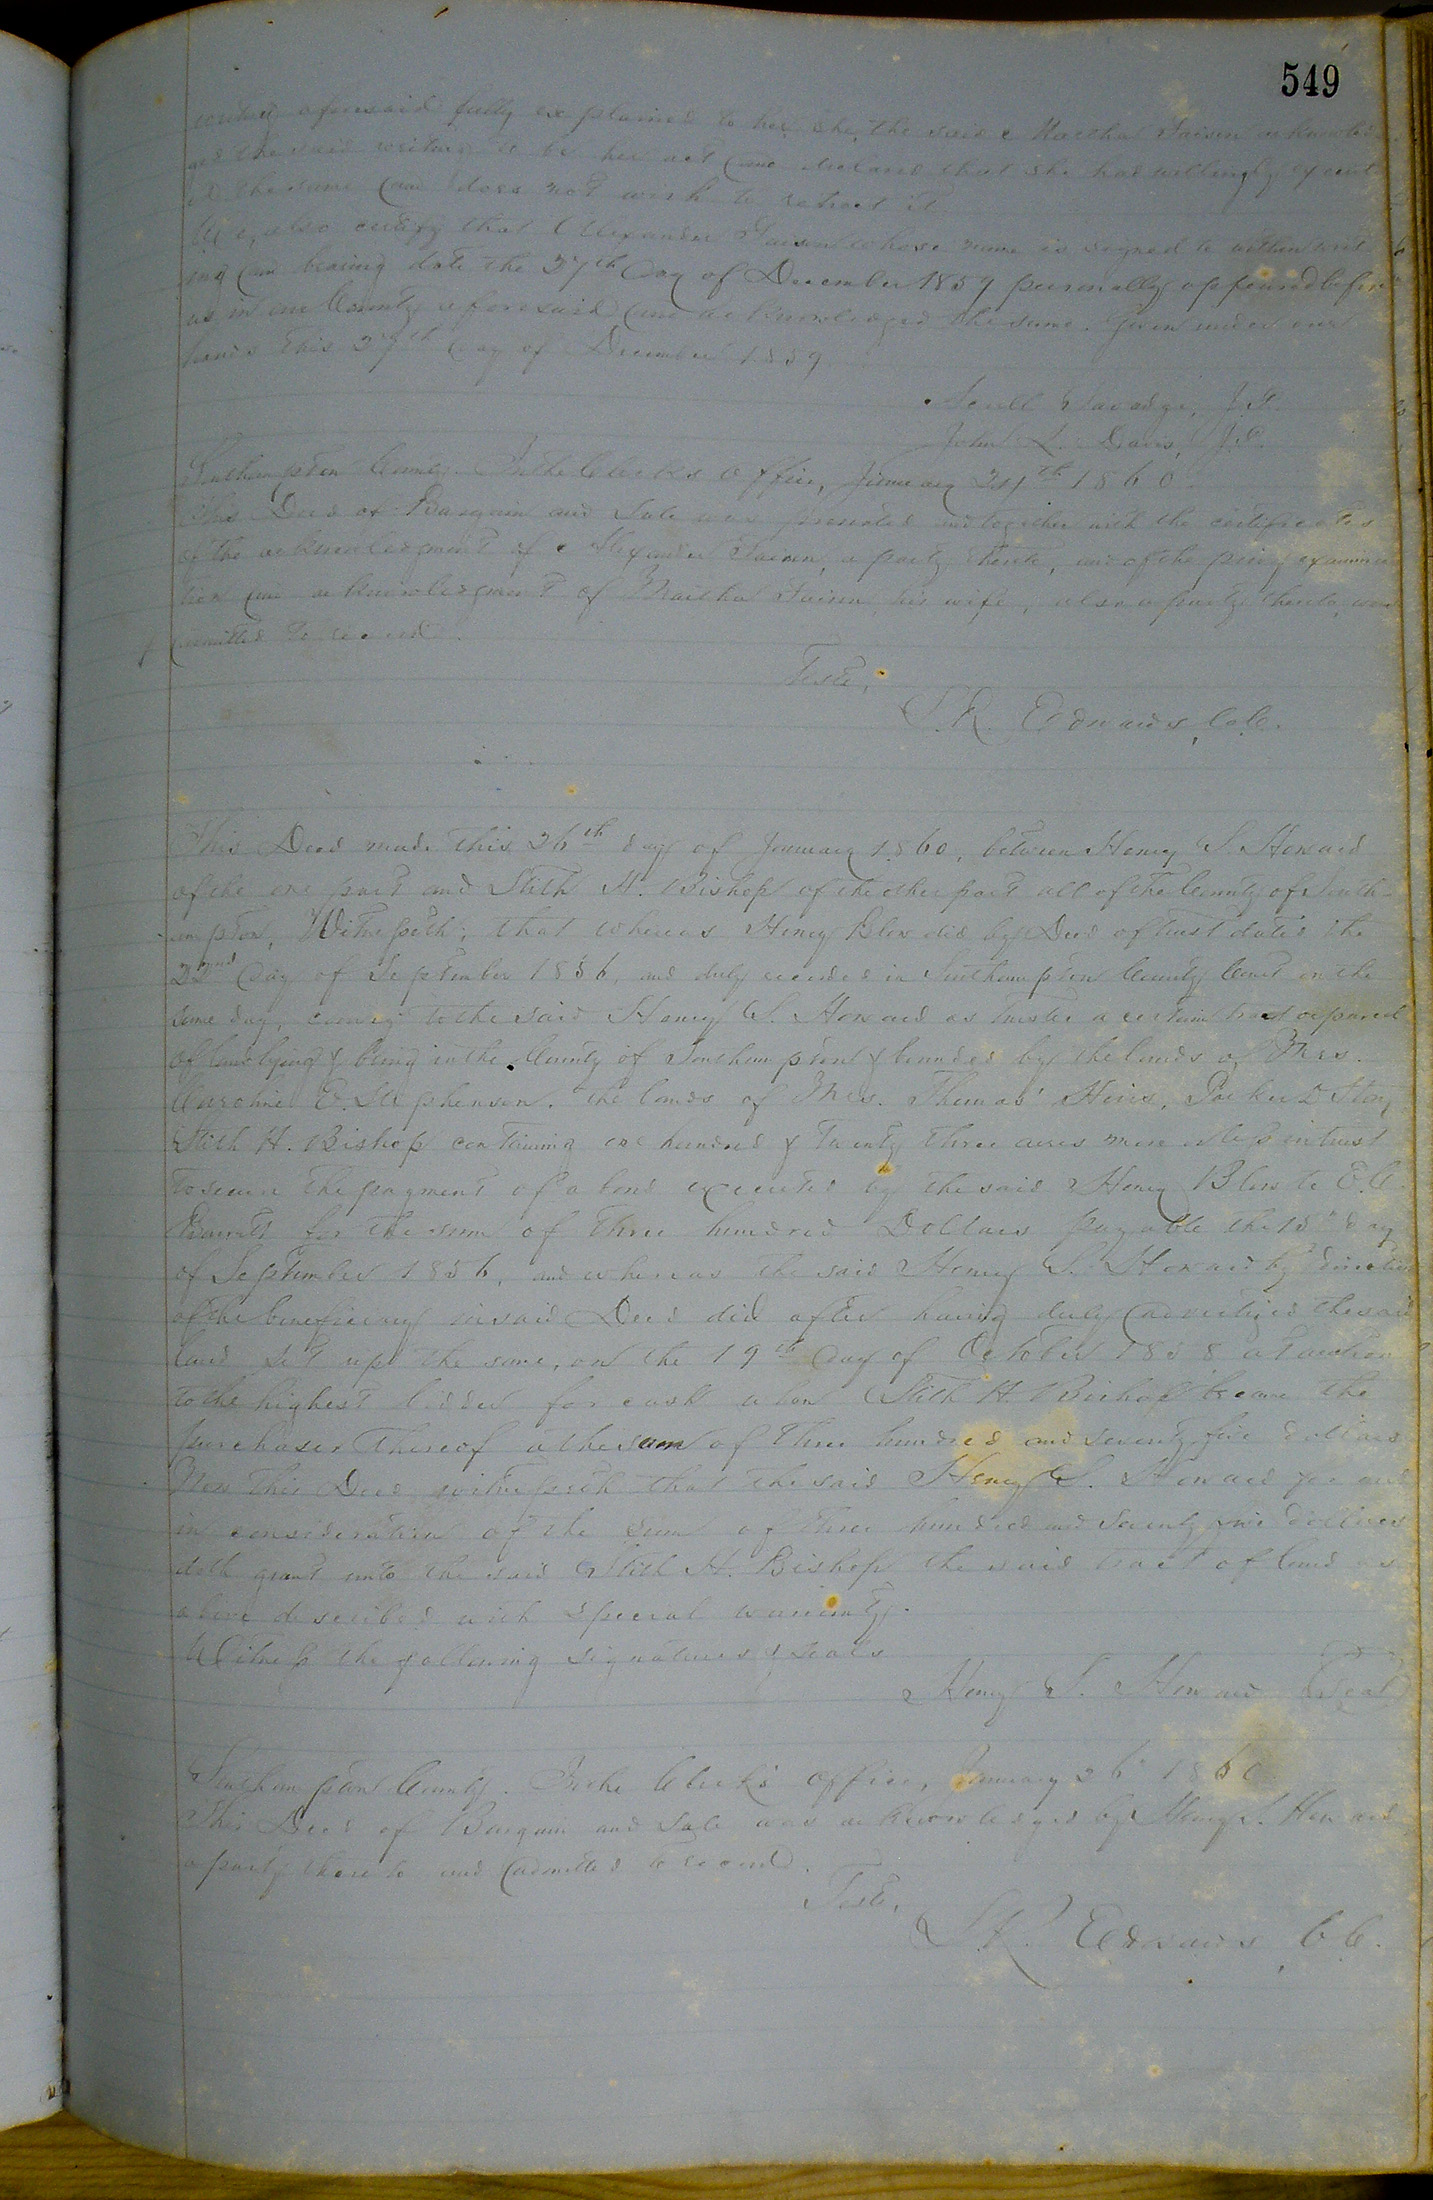 549
writing aforesaid fully explained to her she, the said Martha Faison acknowled-
ged the said writing to be her act and declared that she had willingly execut
ed the same and does not wish to retract it.
We, also certify that Alexander Faison whose name is signed to within writ
ing and bearing date the 27th day of December 1859 personally appeared before
us in our County aforesaid and acknowledged the same. Given under our
hands this 27th day of December 1859.
Savadge, J.P.
John L. Davis, J.P.
Southampton County. In the Clerks Office, January 1860.
This Deed of Bargain and Sale was presented and together with the certificates
of the acknowledgment of Alexander Faison, a party thereto, and of the privy examina
tion and acknowledgment of Martha Faison his wife, also a party thereto, was
admitted to record.
Teste,
L.R. Edwards, C.C.
This Deed made this 26th day of January 1860, between Henry S. Howard
of the one part and Stith H. Bishop of the other part all of the County of South-
ampton, Witnesseth; that whereas Henry Blow did by Deed of trust dated the
22nd day of September 1856, and duly recorded in Southampton County Court on the
same day, convey to the said Henry S. Howard as trustee a certain tract or parcel
of land lying & being in the County of Southampton & bounded by the lands of Mrs.
Caroline E. Stephenson, the lands of Mrs. Thomas' Heirs, Parker D.
Stith H. Bishop containing one hundred & twenty three acres more or less in trust
to secure the payment of a bond executed by the said Henry Blow to E.C.
Barrett for the sum of three hundred Dollars payable the 15th day
of September 1856, and whereas the said Henry S. Howard by direction
of the beneficiary in said Deed did after having duly advertized the said
land set up the same, on the 19th day of October 1858 at auction
to the highest bidder for cash when Stith H. Bishop became the
purchaser thereof at the sum of three hundred and seventy five dollars
Now this Deed witnesseth that the said Henry S. Howard for and
in consideration of the sum of three hundred and seventy five dollars
doth grant unto the said Stith H. Bishop the said tract of land as
above described with special warranty.
Witness the following signatures & seals
Henry S. Howard Seal
Southampton County. In the Clerk's office, January 26th 1860.
This Deed of Bargain and Sale was acknowledged by Henry S. Howard
a party thereto and admitted to record.
Teste,
L.R. Edwards, C.C.